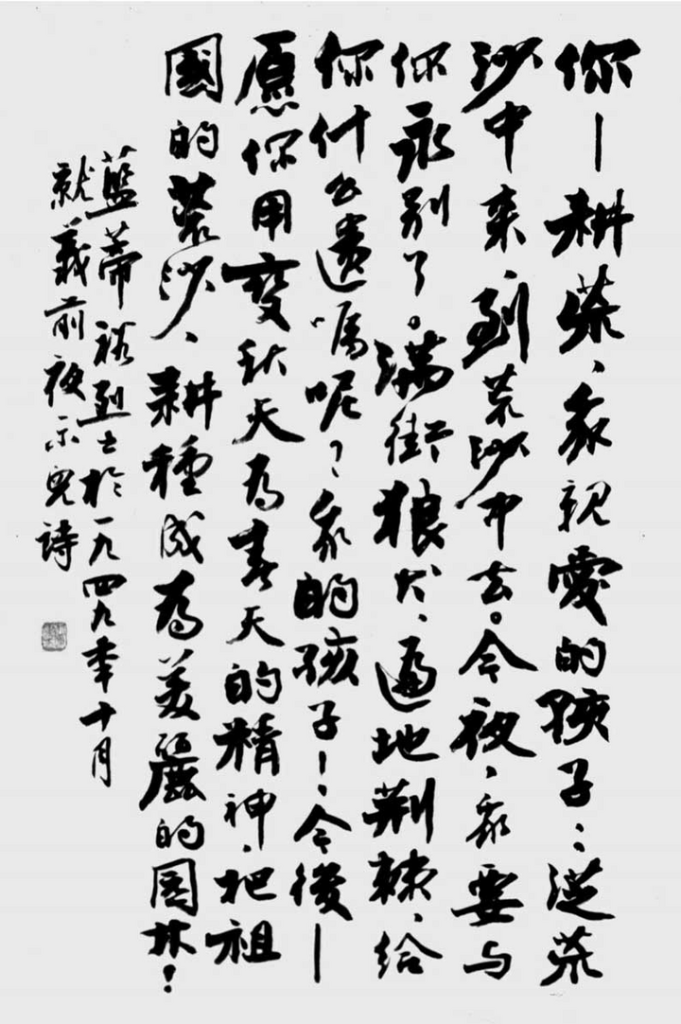 你—耕荒、我親愛的孩子：從荒
沙中来、到荒沙中去。今夜、我要与
你永别了。满街狼犬、遍地荆棘、给
你什么遗嘱呢？我的孩子！今後—
愿你用變秋天为春天的精神、把祖
國的荒沙、耕種成为美麗的园林！
藍蒂裕烈士於一九四九年十月
就義前夜示兒詩